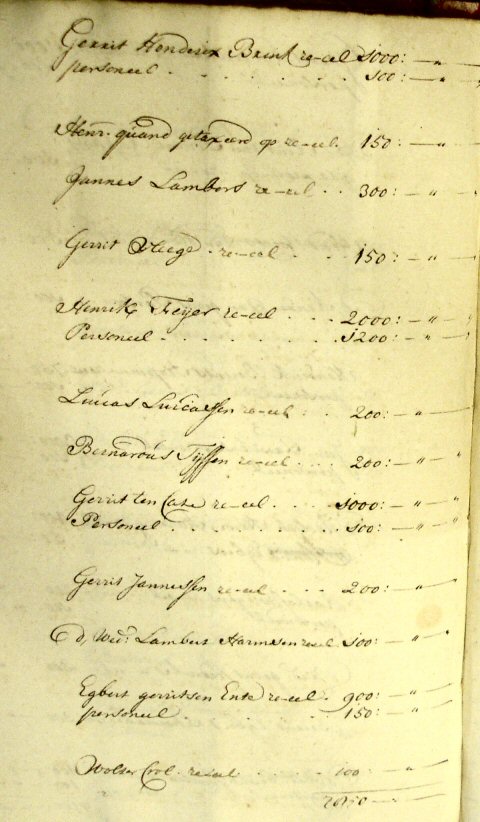 Gerrit Hendrix Brink re-eel 1000: — "
personeel . . . . . . 100: — "
Henr. quand getaxeerd op re-eel. 150: — "
Jannes Lambers re-eel . . 300: — "
Gerrit . re-eel . . . 150: — "
Henrik Feyer re-eel . . . 2000: — "
Personeel . . . . . . . 1200: — "
Lucas Lucassen re-eel . . 200: — "
Bernardus Tyssen re-eel . . . 200: — "
Gerrit ten Cate re-eel . . . . 1000: — "
Personeel . . . . . . . . 100: — "
Gerrit Jannessen re-eel . . . . 200: — "
d, Wed: Lambert Harmsen re-eel 100: — "
Egbert gerritsen Ente re-eel . 900: — "
personeel . . . . . . 150: — "
Wolter Crol. re-eel . . . . . 100: — "